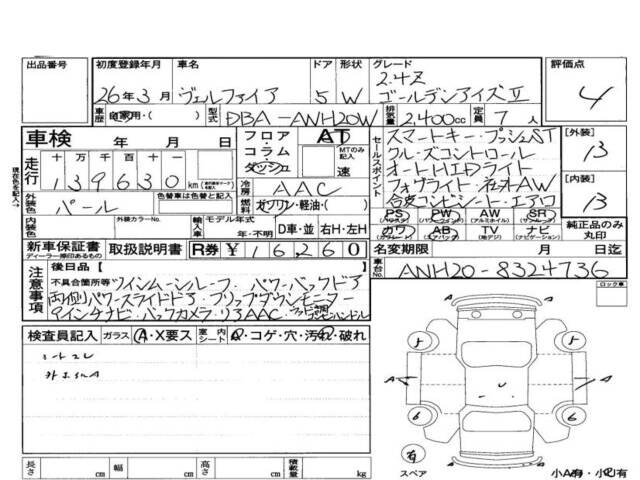 出品番号 初度登録年月 車名 ドア 形状 グレード 評価点
26年3月 ヴェルファイア 5 W 2.4Z ゴールデンアイズⅡ 4
車歴 自家用・( ) 型式 DBA-ANH20W 排気量 2.400cc 定員 7人
車検 年 月 日 フロア コラム ダッシュ AT MTのみ記入 速
走行 十 万 千 百 十
139630 km
冷房 AAC
外装色 パール 色替車は色替と記入 燃料 ガソリン・軽油・( )
内装色 外装カラーNo. 輸入車 モデル年式 年・不明 D車・並 右H・左H
セールスポイント スマートキー プッシュST
クルーズコントロール
オートHIDライト
フォグライト 純正AW
合皮コンビシート エアロ
[外装] B
[内装] B
PS PW AW SR
(パワステ) (パワーウィンドウ) (アルミホイル) (サンルーフ)
カワ AB TV ナビ
(エアバッグ) (地デジ) (ナビゲーション)
純正品のみ丸印
新車保証書 ディーラー捺印あるもの 取扱説明書 R券 ¥16,260 名変期限 月 日迄
車台No. ANH20-8324736
注意事項 後日品 [ ]
不具合箇所等 ツインムーンルーフ パワーバックドア
両側パワースライドドア フリップダウンモニター
9インチナビ バックカメラ リアAAC ウッド調コンビハンドル
ロック車
検査員記入 ガラス A・X要ス 室内シート コゲ・穴・汚れ・破れ
A A
5 5
6 6
有
スペア 小A有・小U有
長さ cm 幅 cm 高さ cm 積載量 kg